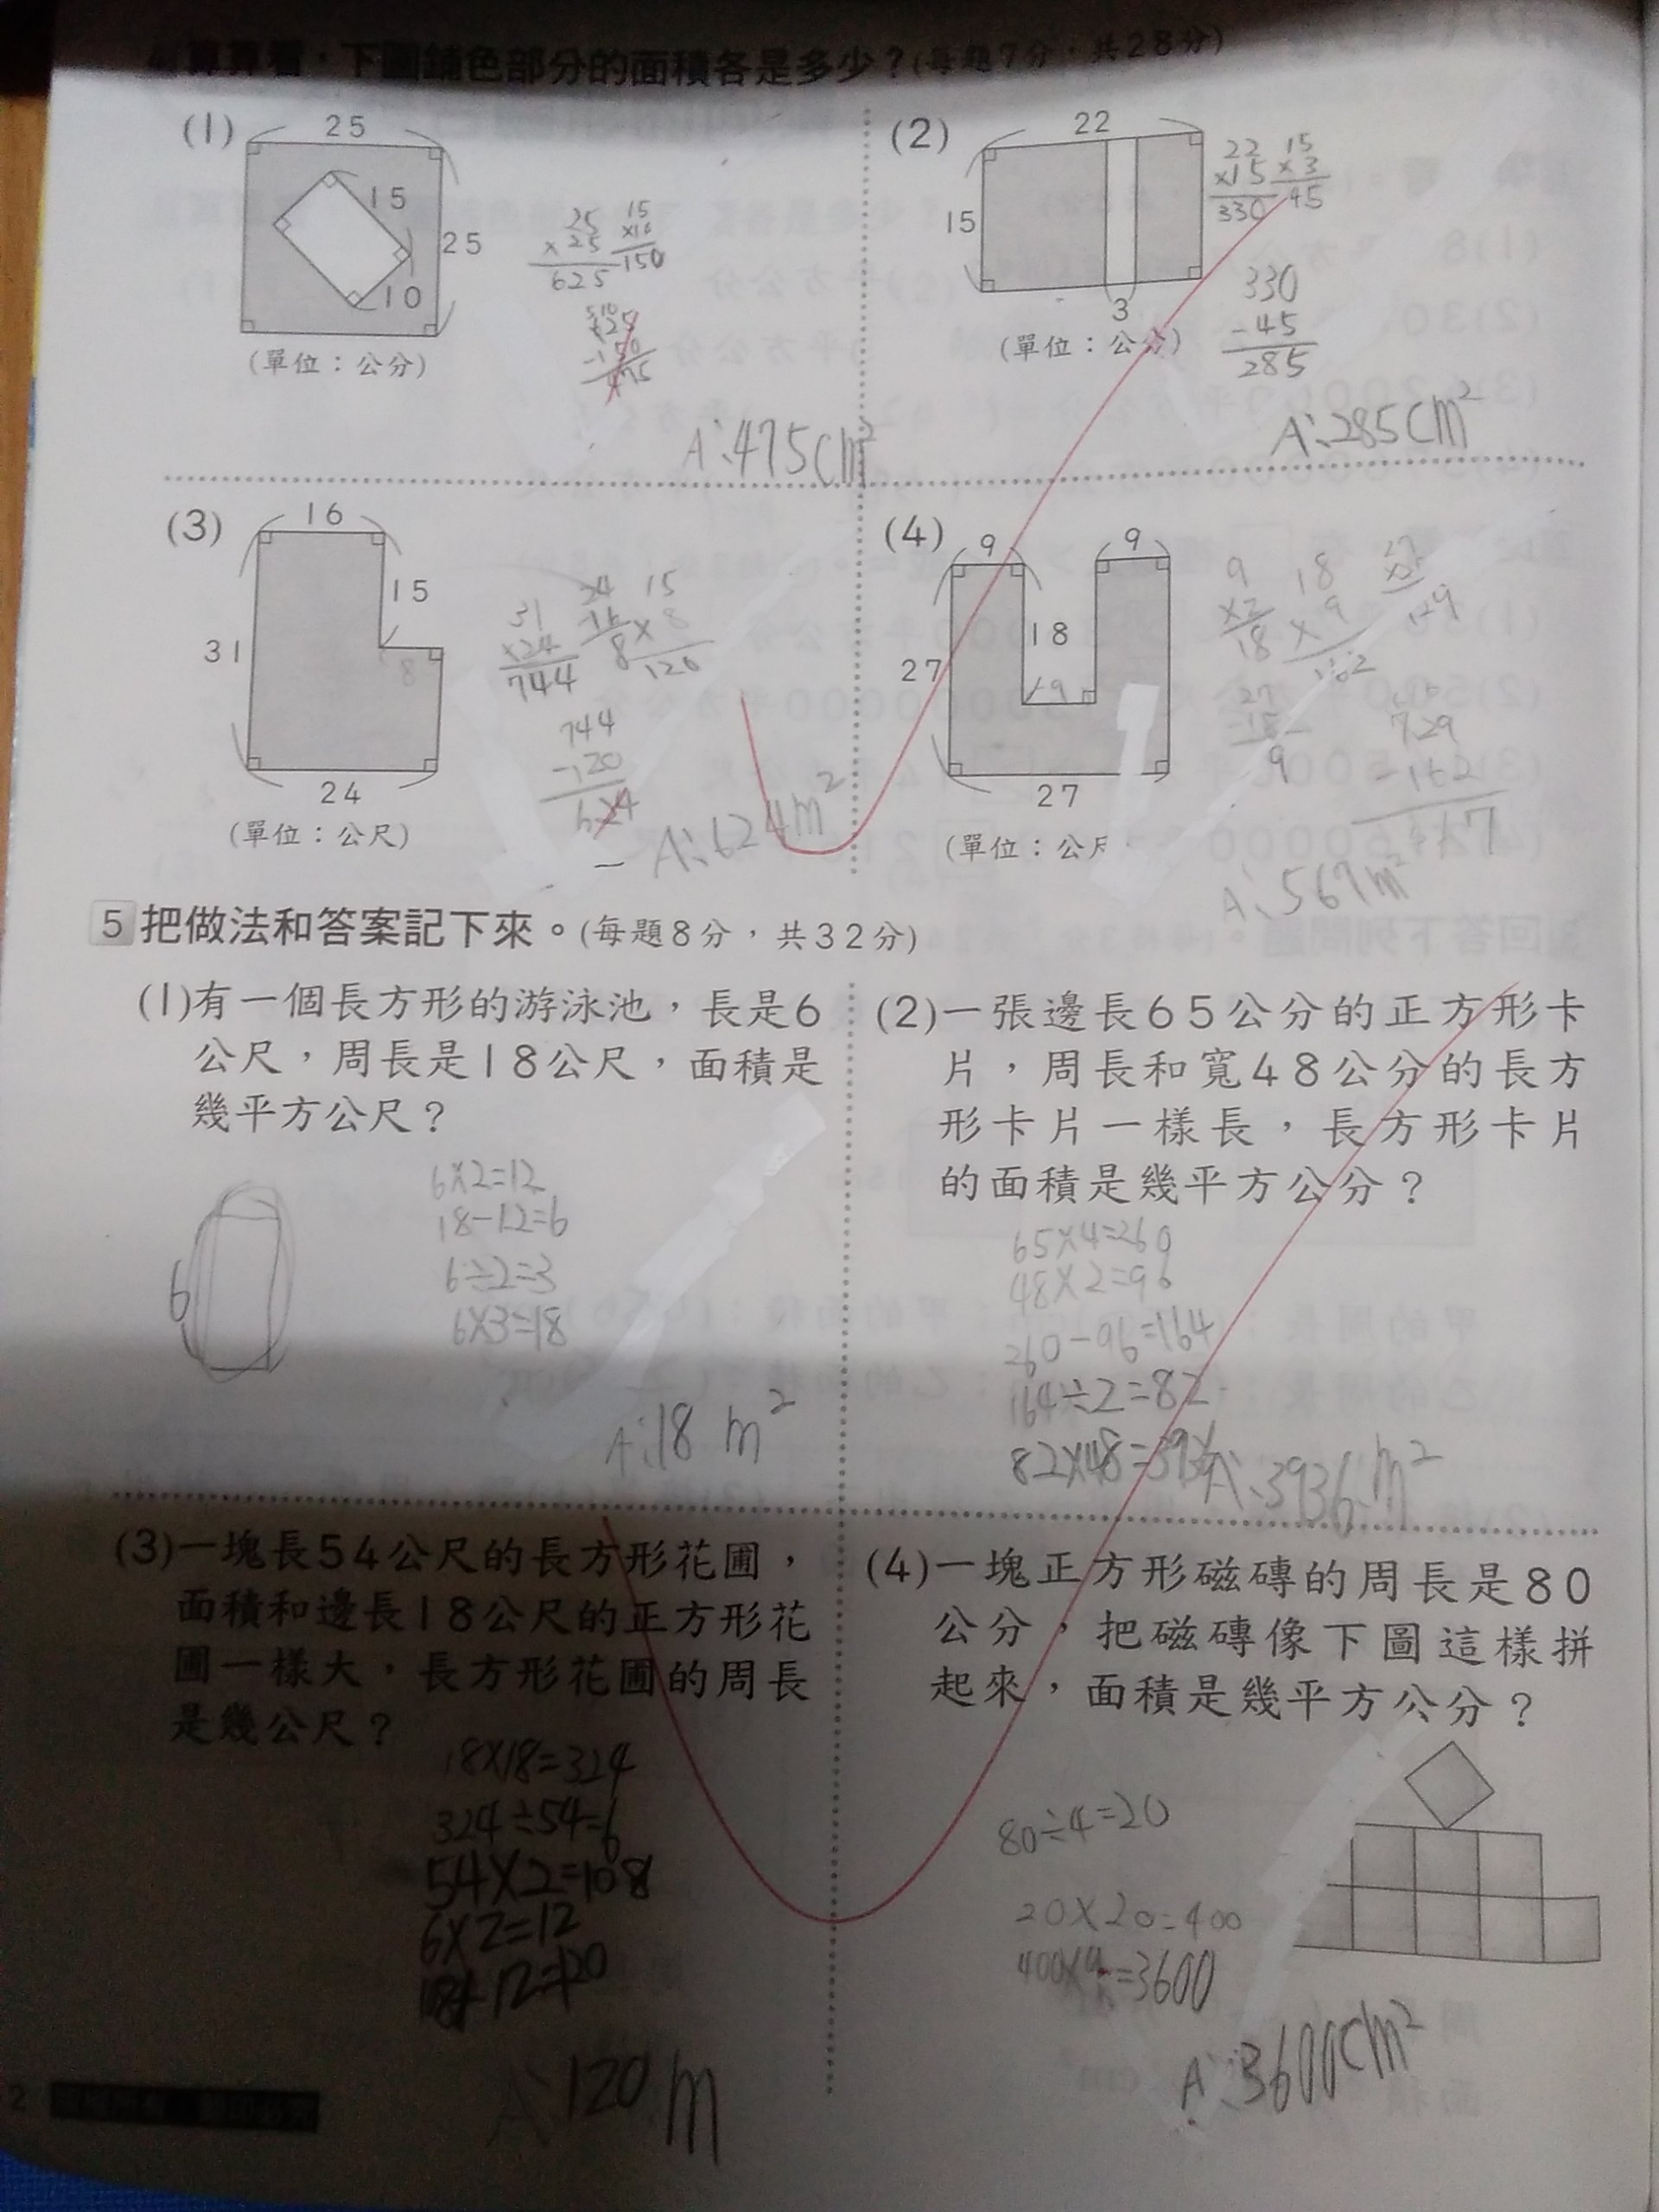 算算看，下圖鋪色部分的面積各是多少？(每題7分，共28分)
(1)
25
15
25
10
(單位：公分)
25
×25
625
15
×10
150
A:475cm²
(2)
22
15
3
(單位：公分)
22
×15
330
15
×3
45
330
-45
285
A:285cm²
(3)
16
15
31
8
24
(單位：公尺)
31
×24
744
24
-16
8
15
×8
120
744
-120
624
A:624m²
(4)
9
9
18
27
9
27
(單位：公尺
9
×2
18
18
×9
162
27
-18
9
729
-162
A:567m²
5 把做法和答案記下來。(每題8分，共32分)
(1)有一個長方形的游泳池，長是6
公尺，周長是18公尺，面積是
幾平方公尺？
6
6×2=12
18-12=6
6÷2=3
6×3=18
A:18 m²
(2)一張邊長65公分的正方形卡
片，周長和寬48公分的長方
形卡片一樣長，長方形卡片
的面積是幾平方公分？
65×4=260
48×2=96
260-96=164
164÷2=82
82×48=3936
A:3936 m²
(3)一塊長54公尺的長方形花圃，
面積和邊長18公尺的正方形花
圃一樣大，長方形花圃的周長
是幾公尺？
18×18=324
324÷54=6
54×2=108
6×2=12
A:120 m
(4)一塊正方形磁磚的周長是80
公分，把磁磚像下圖這樣拼
起來，面積是幾平方公分？
80÷4=20
20×20=400
400×9=3600
A:3600cm²
2